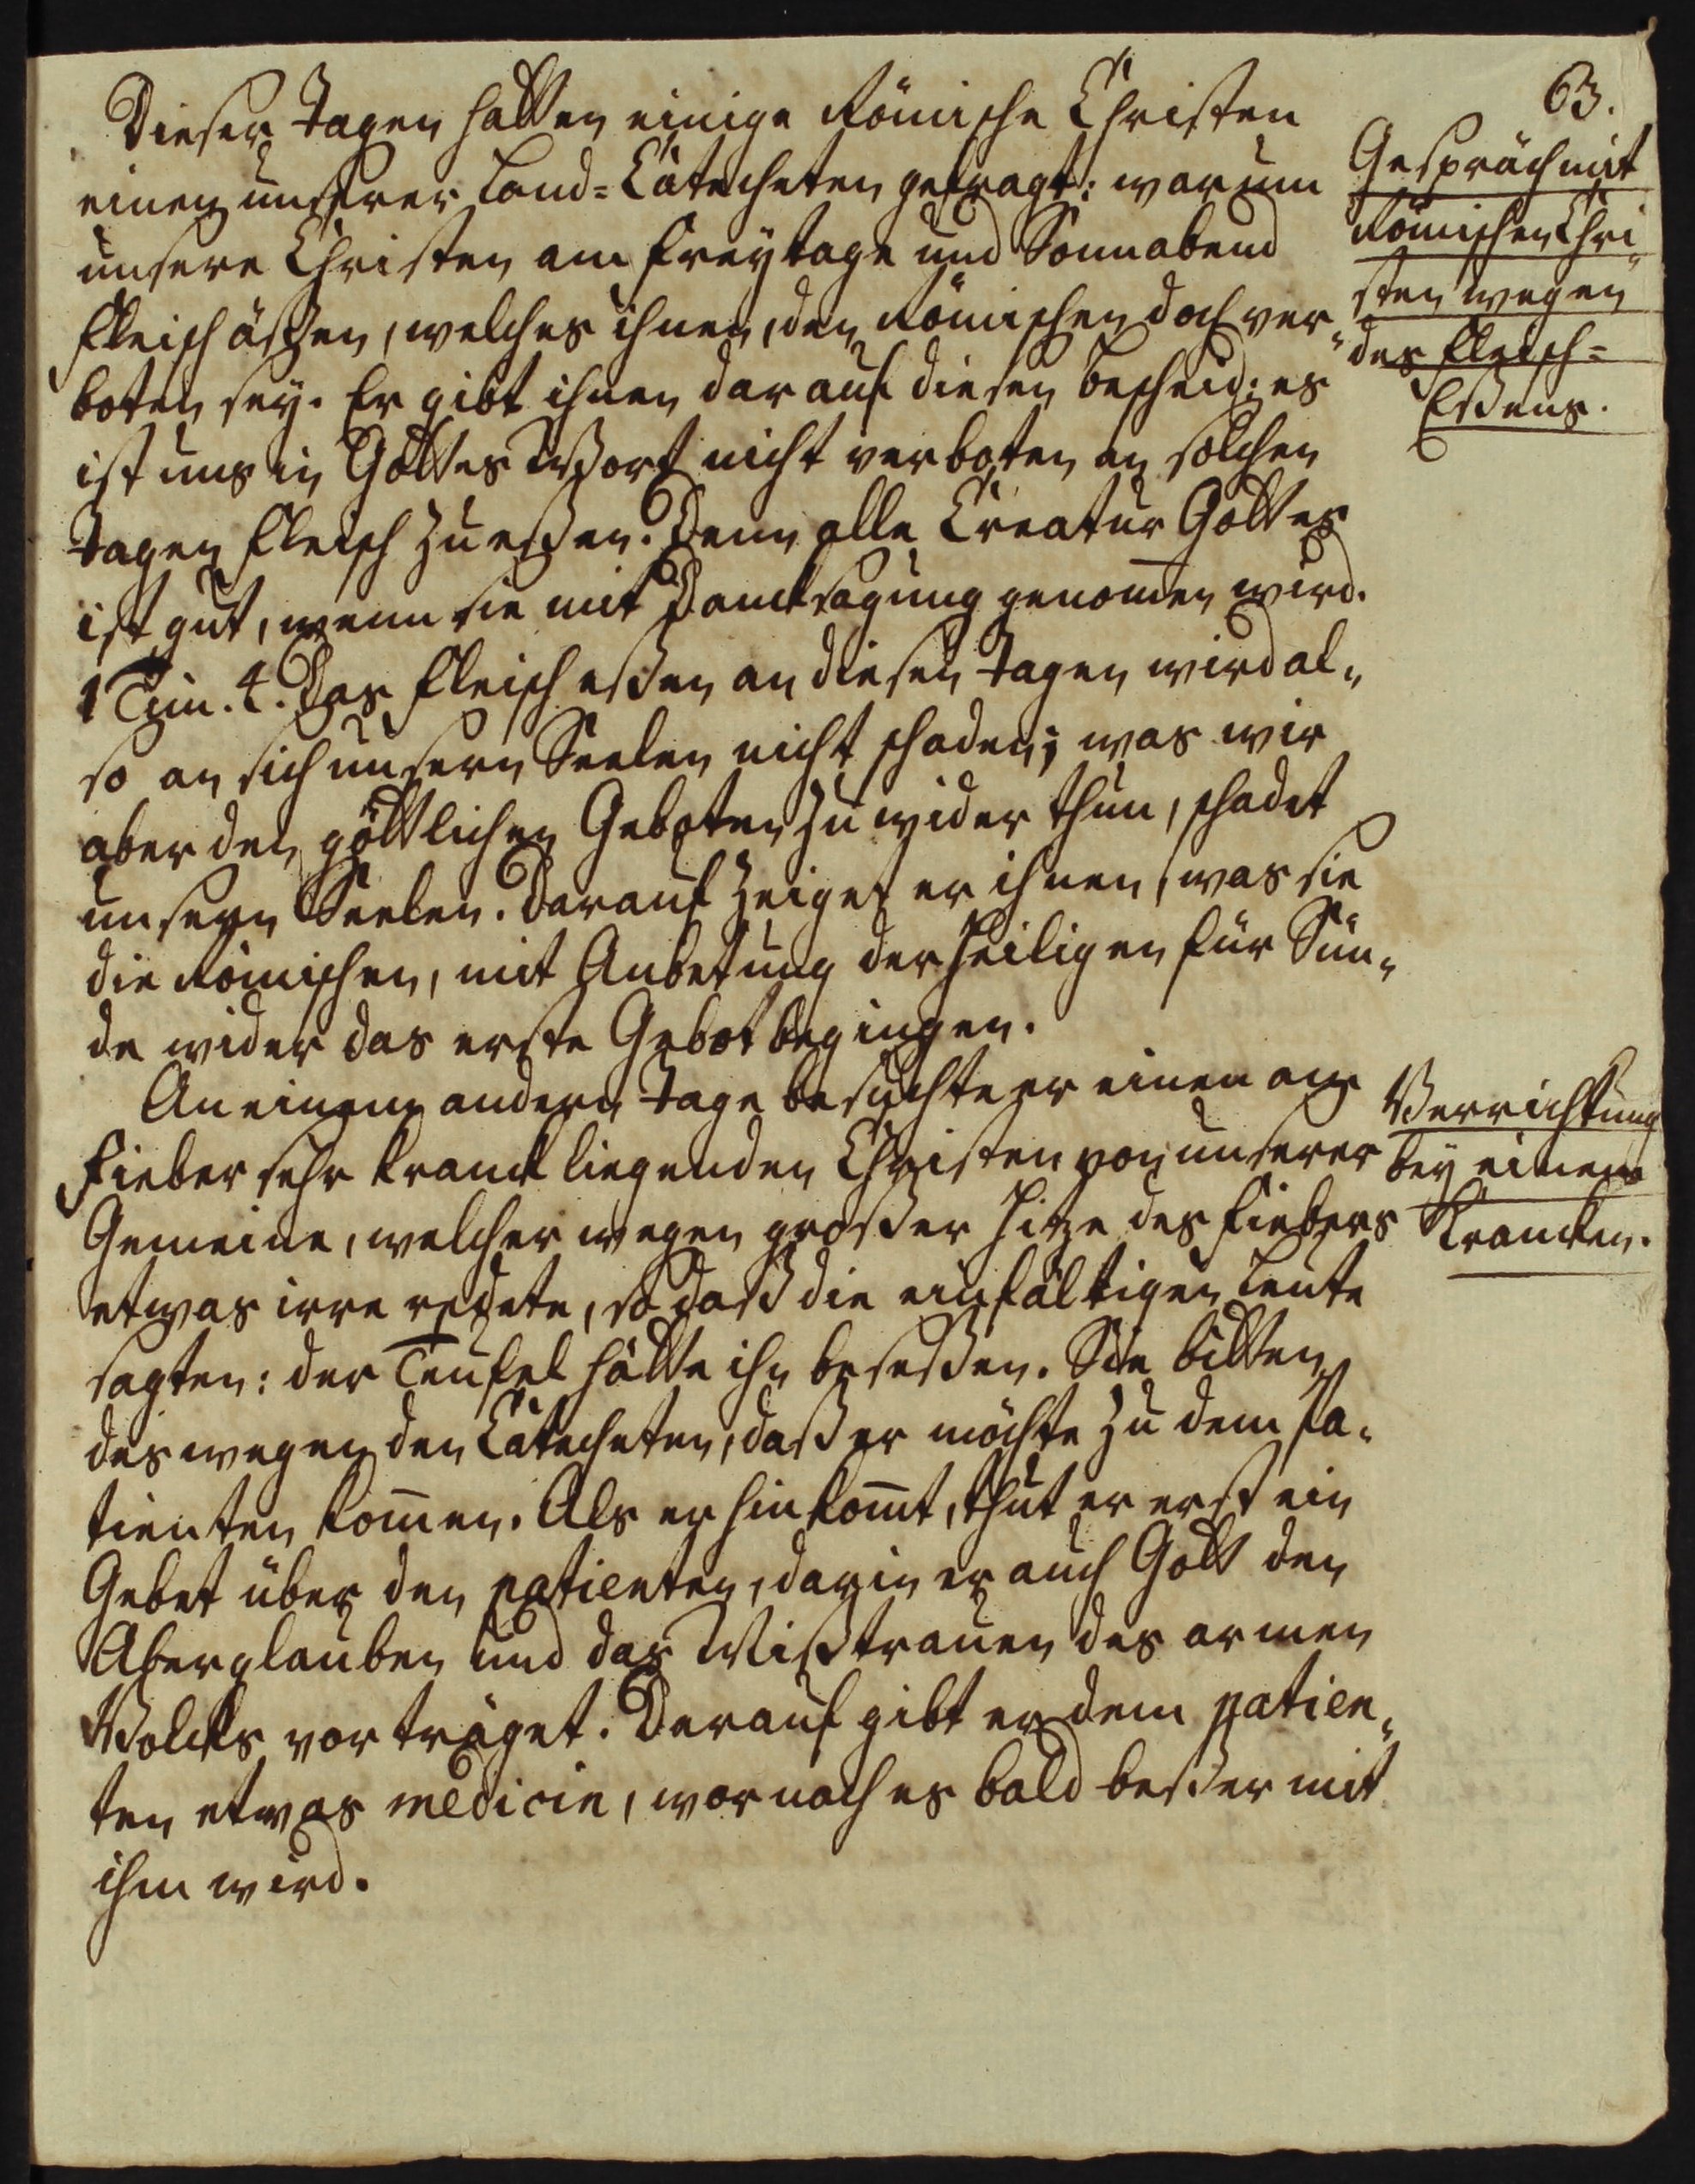 63.
Dieser Tagen hatten einige Römische Christen
einen unserer Land-Catecheten gefragt: warum
unsere Christen am Freytage und Sonnabend
Fleisch äßen, welches ihnen, den Römischen doch ver-
boten sey. Er gibt ihnen darauf diesen Bescheid: es
ist uns in Gottes Wort nicht verboten an solchen
Tagen Fleisch zu eßen. Denn alle Creatur Gottes
ist gut, wenn sie mit Dancksagung genom̄en wird.
1 Tim. 4. Das Fleisch eßen an diesen Tagen wird al-
so an sich unsern Seelen nicht schaden; was wir
aber den göttlichen Geboten zu wider thun, schadet
unsern Seelen. Darauf zeiget er ihnen, was sie
die Römischen, mit Anbetung der Heiligen für Sün-
de wider das erste Gebot begingen.
An einem andern Tage besuchte er einen am
Fieber sehr kranck liegenden Christen von unserer
Gemeine, welcher wegen großer Hitze des Fiebers
etwas irre redete, so daß die einfältigen Leute
sagten: der Teufel hätte ihn beseßen. Sie bitten
deswegen den Catecheten, daß er möchte zu dem Pa-
tienten kom̄en. Als er hinkom̄t, thut er erst ein
Gebet über den patienten, darin er auch Gott den
Aberglauben und das Mißtrauen des armen
Volcks vorträget. Darauf gibt er dem patien-
ten etwas medicin, wornach es bald beßer mit
ihm wird.
Gespräch mit
Römischen Chri-
sten wegen
des Fleisch-
Eßens.
Verrichtung
bey einem
Krancken.